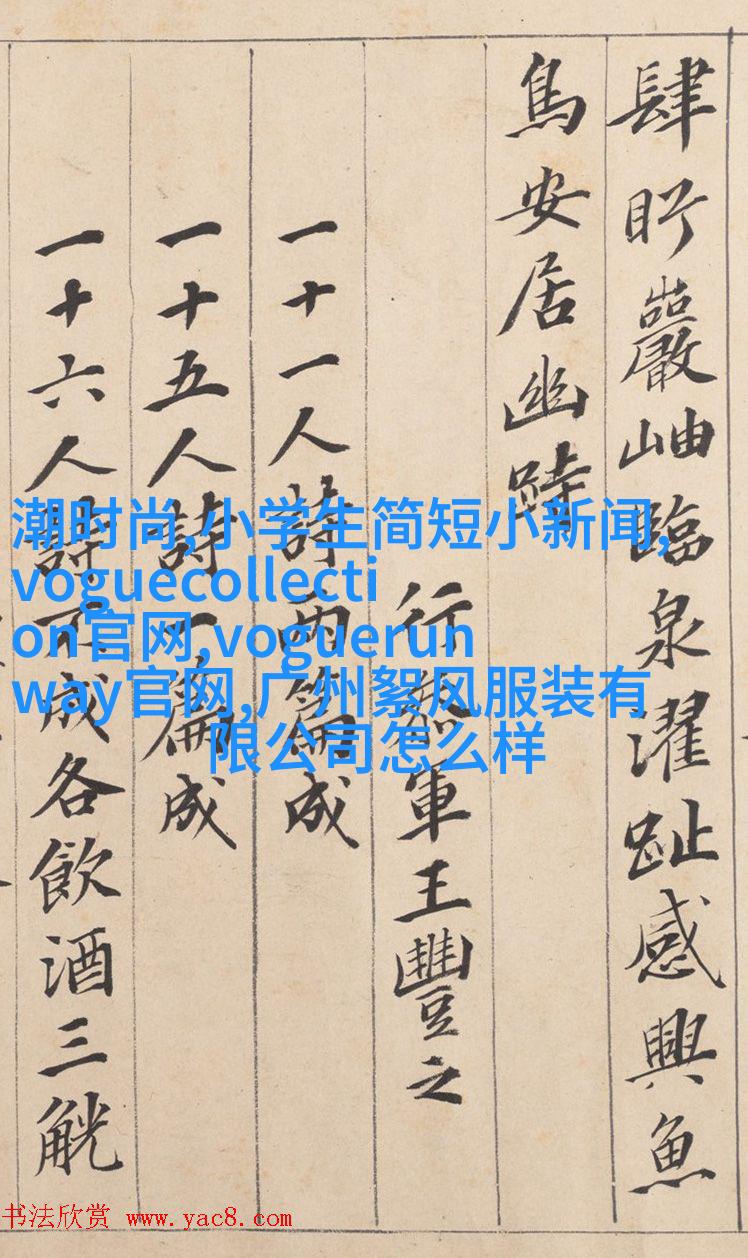 肆盻巖岫臨泉濯趾感興魚
鳥安居幽跱
行叅軍王豐之
一十一人詩兩篇成
一十五人詩一篇成
一十六人詩不成各飲酒三觥
潮时尚,小学生简短小新闻,
voguecollecti
on官网,voguerun
way官网,广州絮风服装有
限公司怎么样
书法欣赏 www.yac8.com